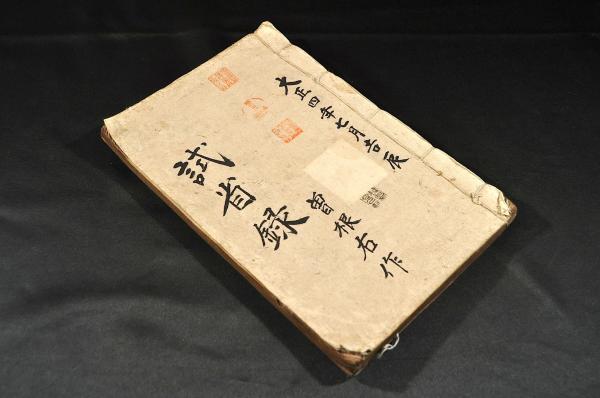 大正四年七月吉辰
試省録
曽根右作